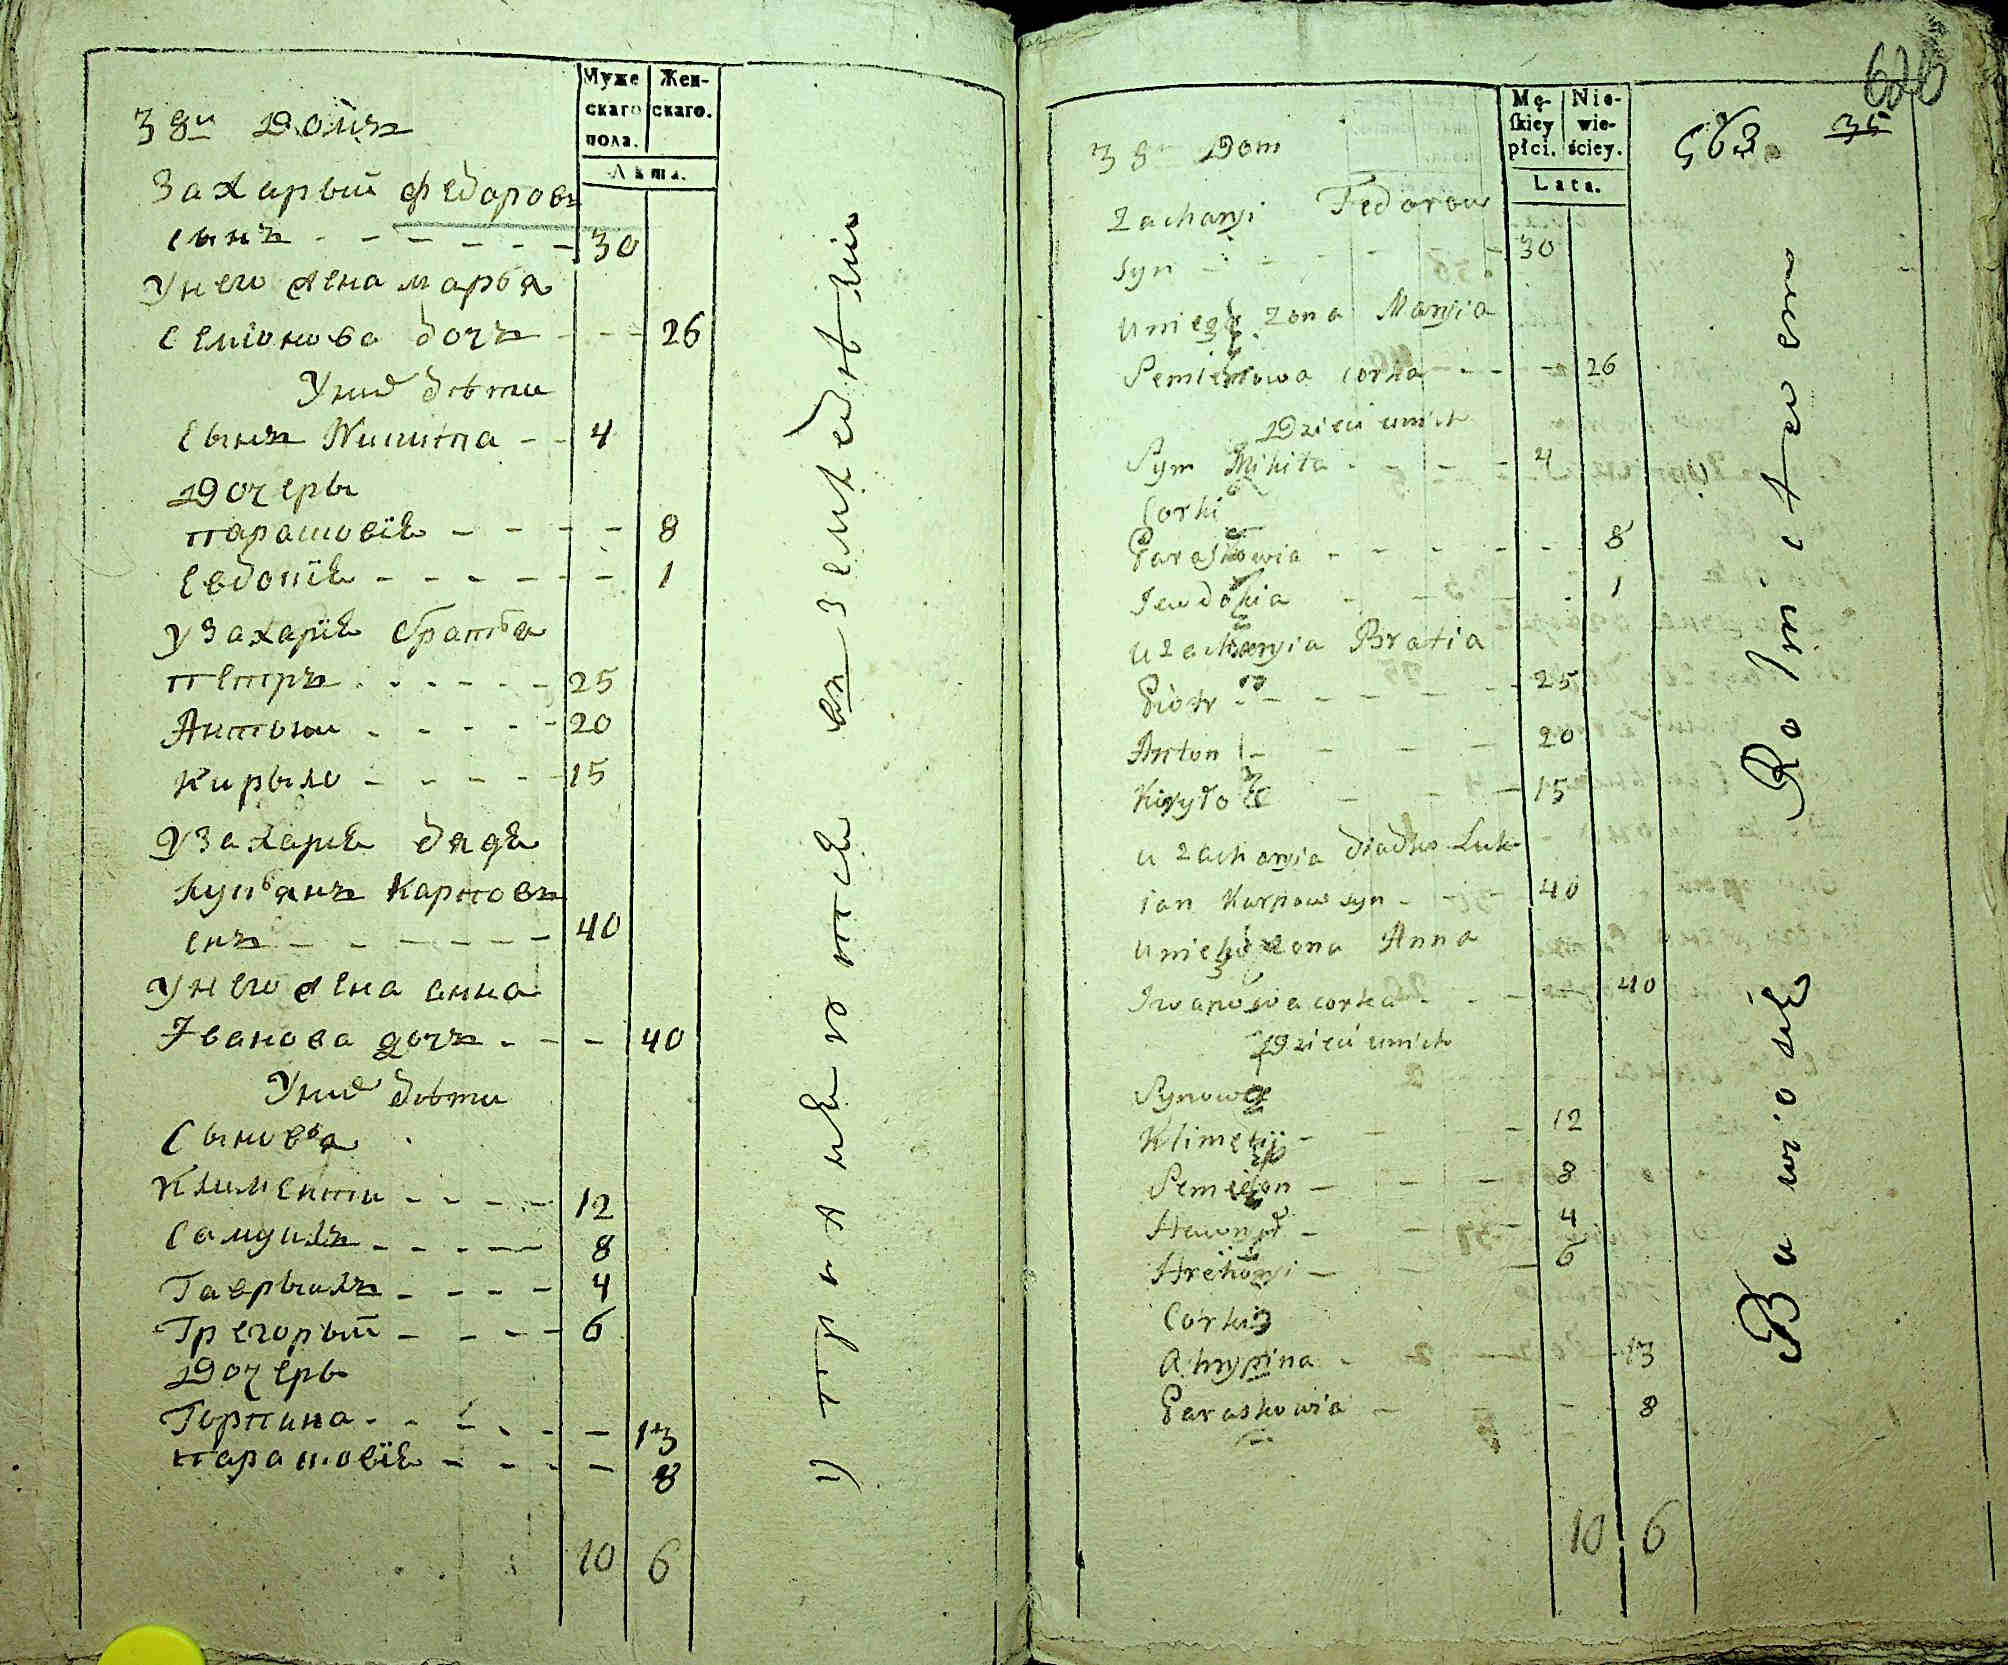 Муже
скаго
пола.
Жен-
скаго.
Лѣта.
3 ди Домъ
Захарый Федоровъ
сынъ - - - - - - 30
Унего жена марья
семионова дочъ - - - 26
Уних дѣти
сынъ Никита - - 4
Дочеры
парасковія - - - - 8
Евдокія - - - - - - 1
У Захарія братья
петръ - - - - - 25
Антони - - - - - 20
Кирыло - - - - - 15
У Захарія дядя
Лукьянъ Карповъ
снъ - - - - - - 40
Унего жена анна
Iванова дочъ - - - 40
Уних дѣти
Сыновья
Климентии - - - - 12
Самуилъ - - - - - 8
Гаврыилъ - - - - 4
Грегорый - - - - 6
Дочеры
Горпина - - - - - 13
парасковія - - - - - 8
10 6
упражняются въ земледѣлии
626
563
35
Mę-
ſkiey
płci.
Nie-
wie-
ściey.
Lata.
3 Dom
Zacharyi Fedorow
Syn - - - - - - 30
Uniego zona Maryia
Semienowa corka - - - - 26
Dzieci unich
Syn Mikita - - - - 4
Corki
Paraskowia - - - - - - 8
Jewdokia - - - 1
U zacharyia Bratia
Piotr - - - - - - 25
Anton - - - - - 20
Kiryło - - - 15
u zacharyia diadko Luk
ian Karpow syn - - - 40
Uniego zona Anna
Iwanowa corka - - - - 40
Dzieci unich
Synowe
- - - 12
Semieon - - - - 8
- - - 4
Hrehoryi - - - 6
Corki
Ahrypina - - - - 13
Paraskowia - - - - 8
10 6
Bawiosię Rolnictwem